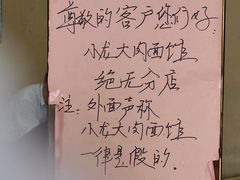 尊敬的客户您们好：
小龙大肉面馆
绝无分店
注：外面声称
小龙大肉面馆
一律是假的．